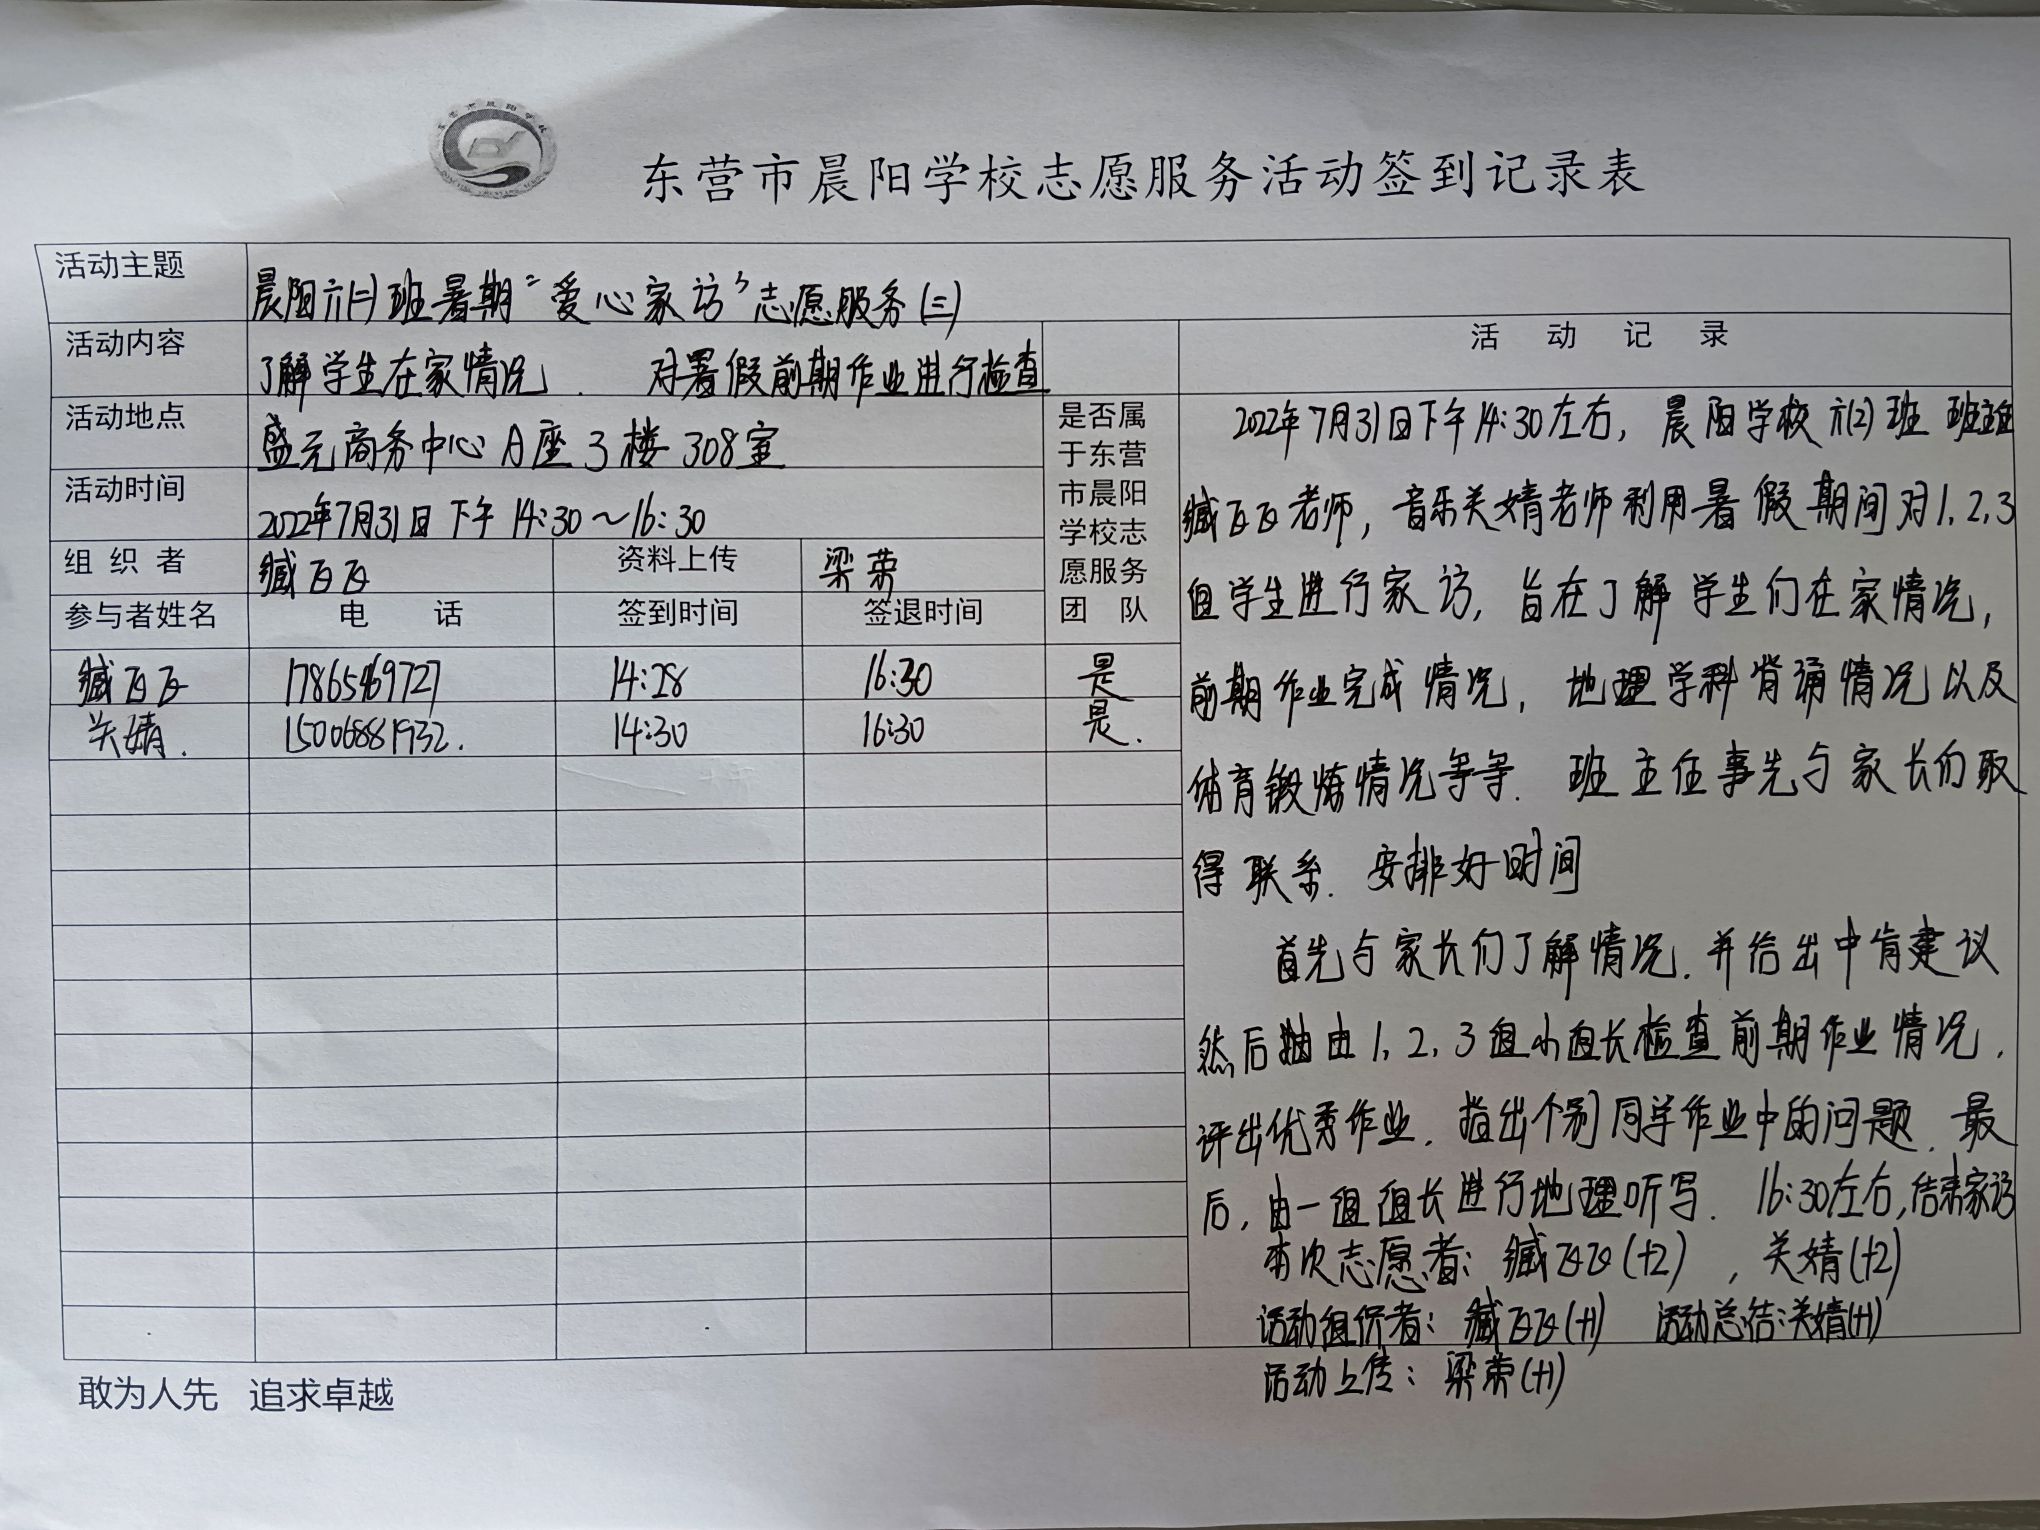 东营市晨阳学校志愿服务活动签到记录表
活动主题 晨阳六(二)班暑期“爱心家访”志愿服务(三)
活动内容 了解学生在家情况. 对暑假前期作业进行检查
活动地点 盛元商务中心A座3楼308室
活动时间 2022年7月31日下午14:30~16:30
组织者 臧瓦瓦 资料上传 梁荣
参与者姓名 电话 签到时间 签退时间
是否属
于东营
市晨阳
学校志
愿服务
团队
臧瓦瓦 17865469727 14:28 16:30 是
关婧. 15006881932. 14:30 16:30 是.
活动记录
2022年7月31日下午14:30左右,晨阳学校六(2)班 班主任
臧瓦瓦老师,音乐关婧老师利用暑假期间对1,2,3
组学生进行家访,旨在了解学生们在家情况,
前期作业完成情况,地理学科背诵情况以及
体育锻炼情况等等. 班主任事先与家长们取
得联系.安排好时间
首先与家长们了解情况.并给出中肯建议
然后抽由1,2,3组小组长检查前期作业情况.
评出优秀作业.指出个别同学作业中的问题.最
后,由一组组长进行地理听写. 16:30左右,结束家访
本次志愿者:臧瓦瓦(+2),关婧(+2)
活动组织者:臧瓦瓦(+1) 活动总结:关婧(+1)
活动上传:梁荣(+1)
敢为人先 追求卓越